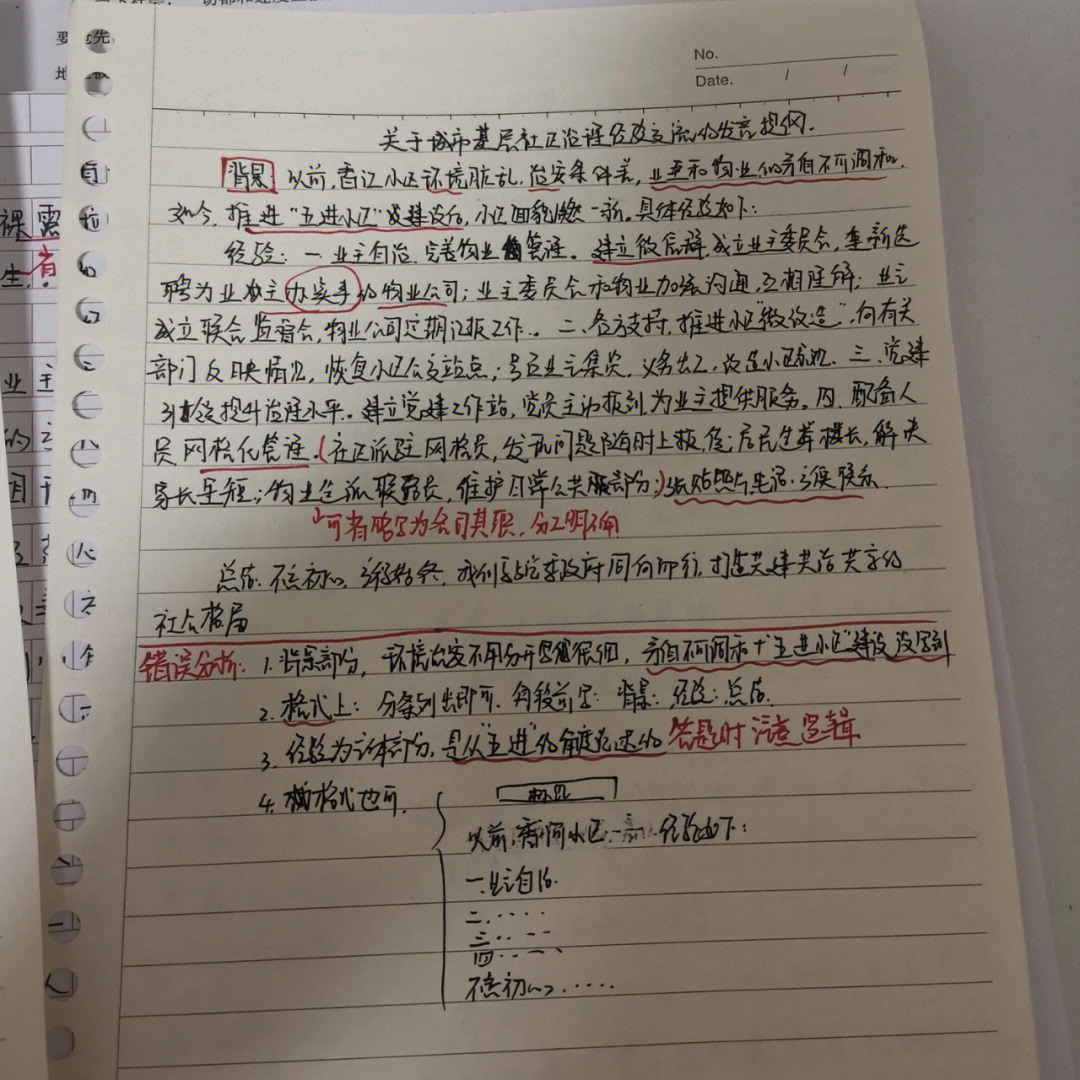 No.
Date. / /
关于城市基层社区治理经验交流的发言提纲.
背景 以前,香江小区环境脏乱,治安条件差,业主和物业的矛盾不可调和.
如今,推进"五进小区"及建设后,小区面貌焕然一新。具体经验如下:
经验: 一.业主自治,完善物业管理。建立微信群,成立业主委员会,重新选
聘为业主办实事的物业公司;业主委员会和物业加强沟通,互相理解;业主
成立联合监督会,物业公司定期汇报工作.。二、各方支持,推进小区"微改造",向有关
部门反映情况,恢复小区公交站点;号召业主集资,义务出工,改造小区危机.三.党建
引领提升治理水平。建立党建工作站,党员主动报到为业主提供服务。四.配备人
员网格化管理.(社区派驻网格员,发现问题随时上报;居民选举楼长,解决
家长里短;物业选派联络员,维护日常公共部分;)张贴照片电话,方便联系.
可省略写为各司其职,分工明确
总结.不忘初心,方得始终,我们与党委政府同向而行,打造共建共治共享的
社会格局
错误分析: 1.背景部分,环境治安不用分开写很细,矛盾不可调和+"五进小区"建设没写到
2.格式上:分条列出即可.每段前写:背景:经验:总结.
3.经验为主体部分,是从"五进"的角度论述的 答题时注意逻辑
4.格式也可.
标题
以前,香江小区...一新.经验如下:
一.业主自治.
二.....
三.....
四.....
不忘初心.....